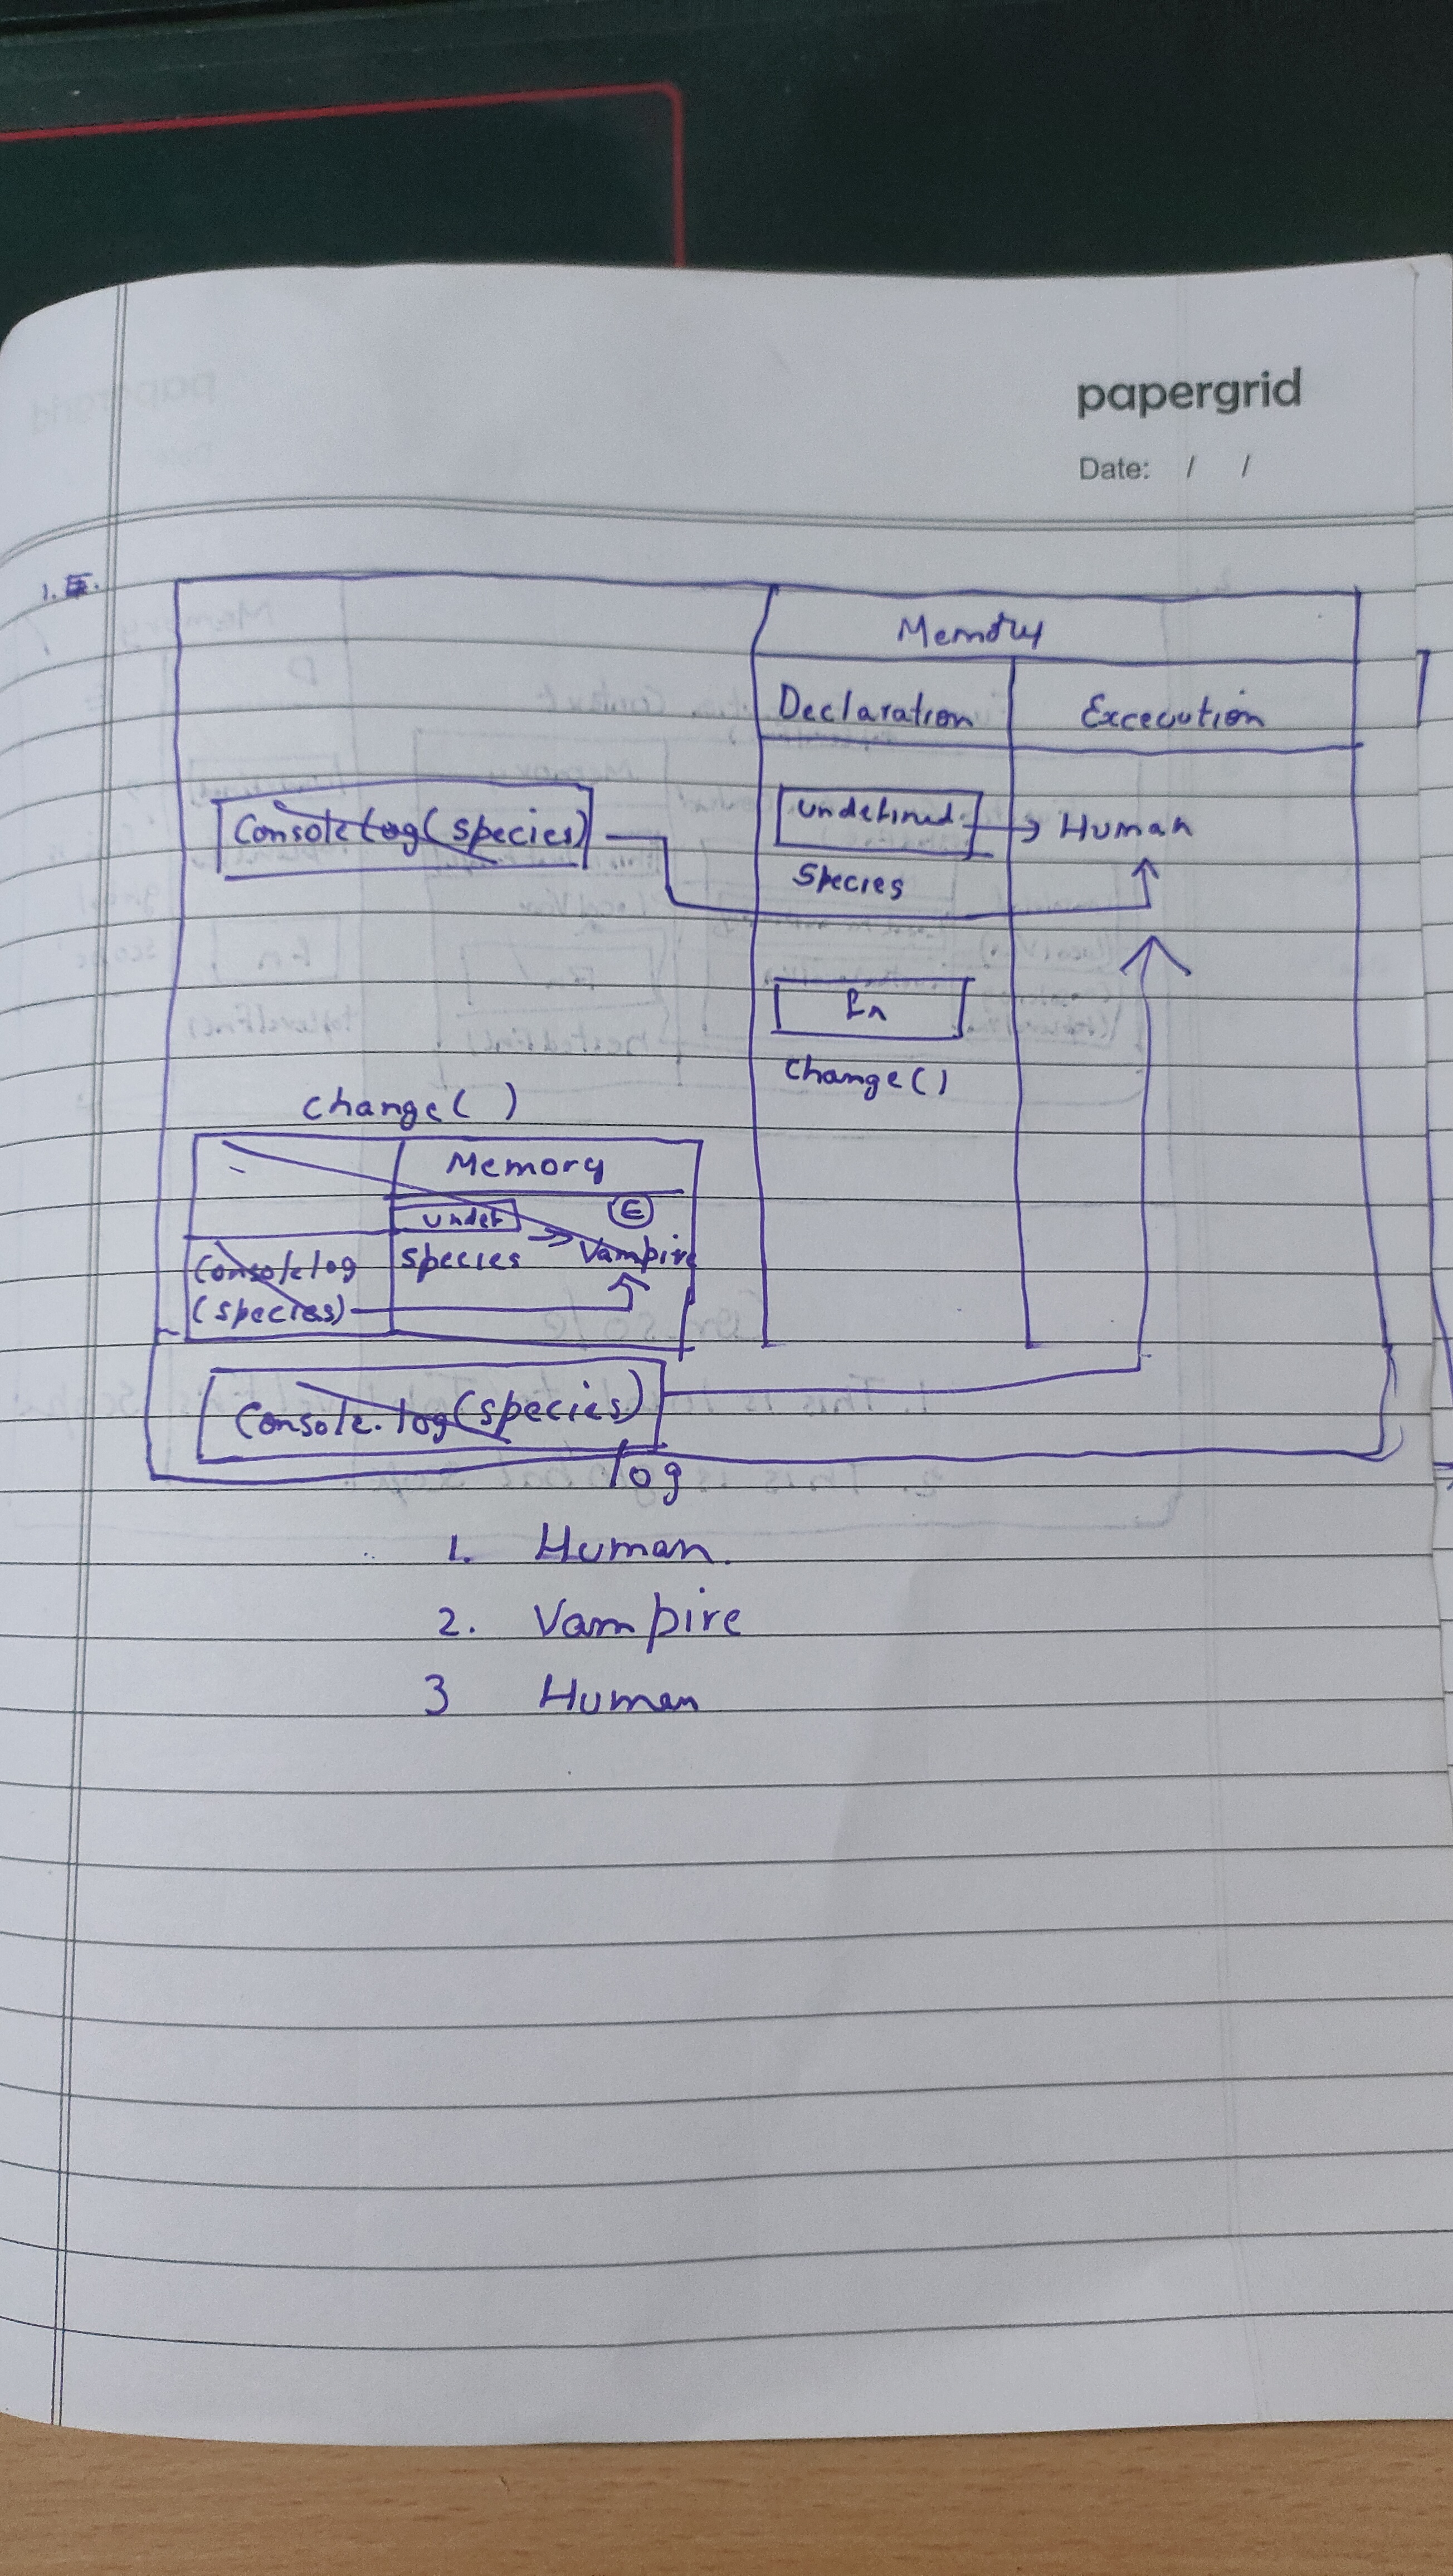 papergrid
Date: / /
1.
Memory
Declaration Excecution
Console log(species) undefined → Human
Species
fn
change()
change( )
Memory
undef E
Console log species → Vampire
(species)
Console.log(species)
log
1. Human.
2. Vampire
3 Human